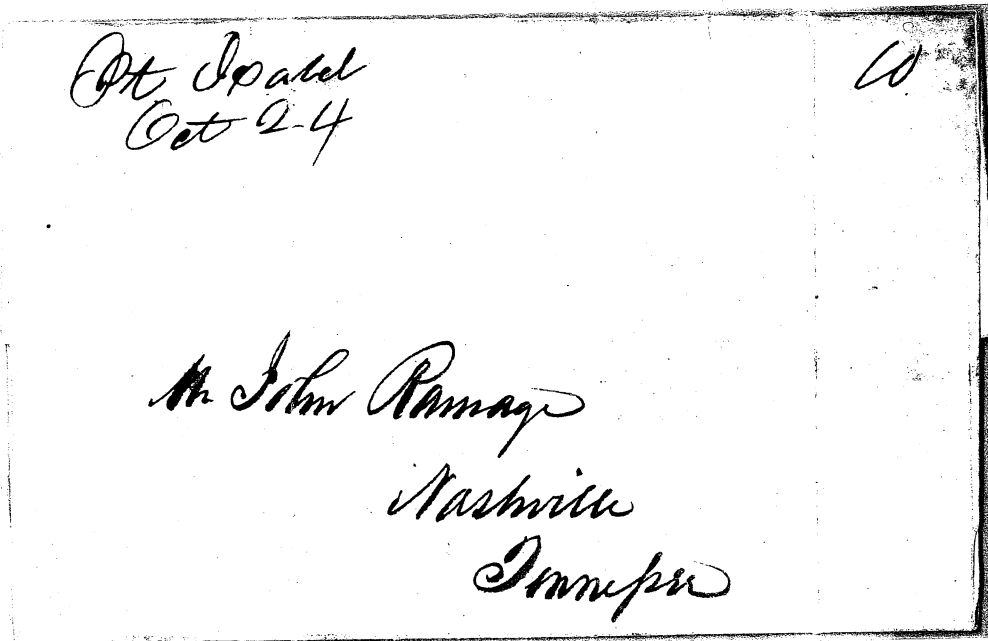 Pt Isabel
Oct 24
10
Mr John Ramage
Nashville
Tennessee